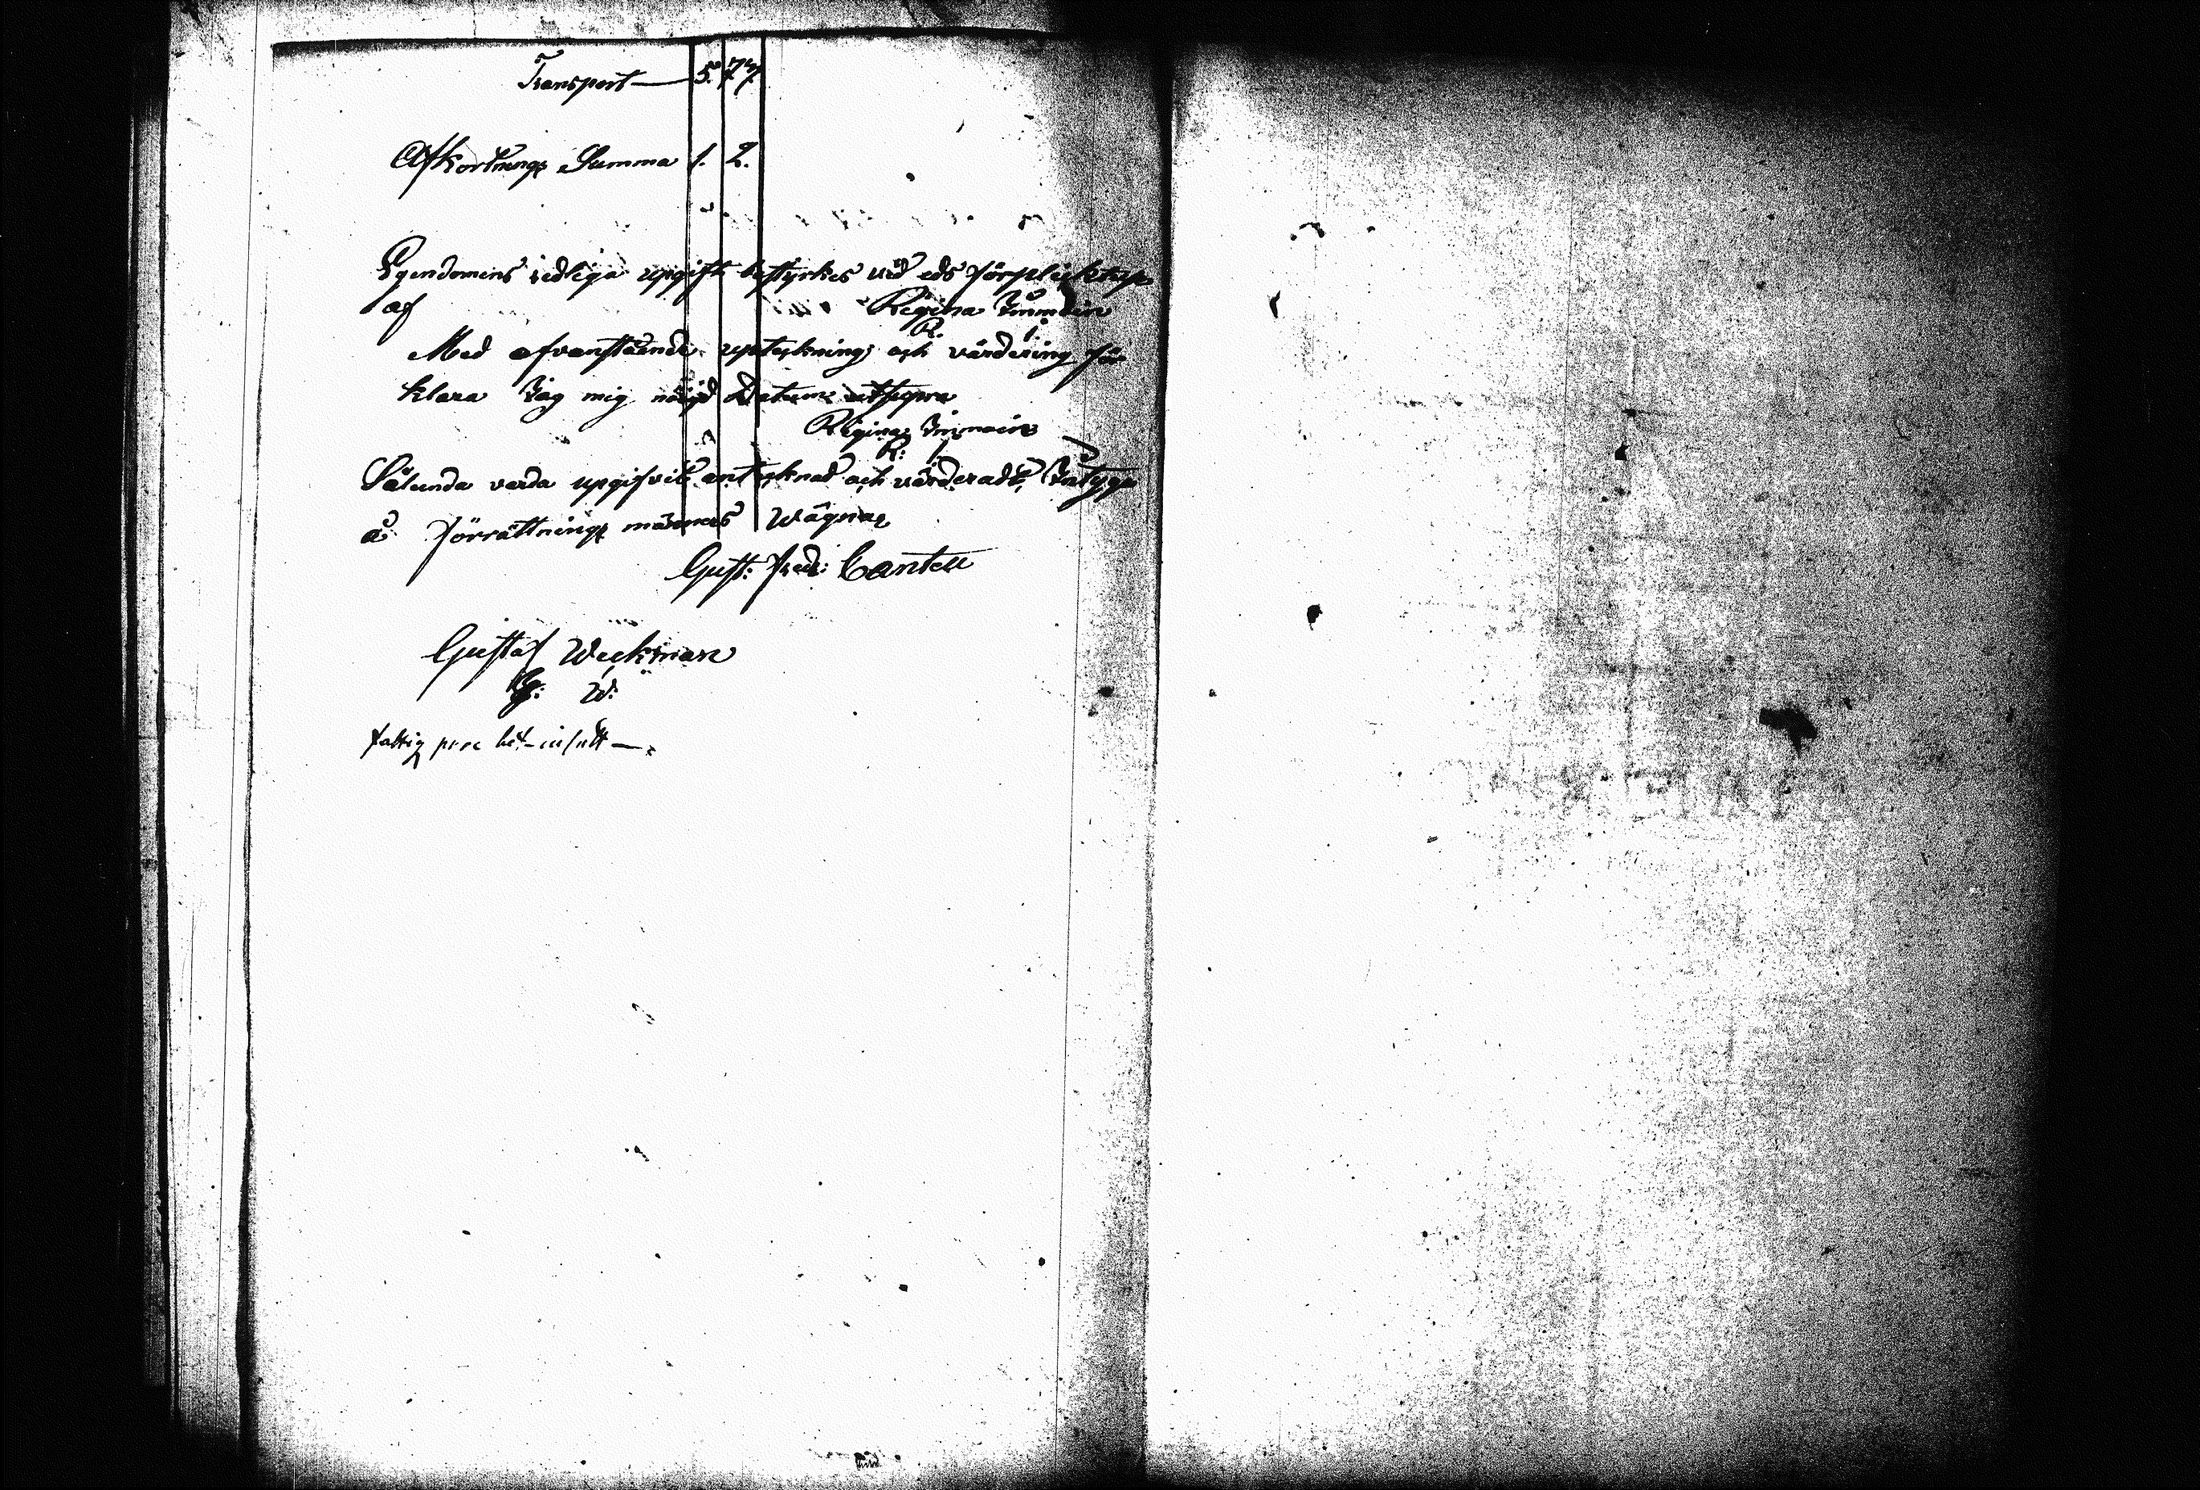 Transport — 5. 77.
Afkortnings Summa 1. 2.
Egendomens redliga uppgift bestyrkes vid eds förpliktelse
af Regina
R. I.
Med ofvanstående upteckning och värdering för
klara Jag mig nöijd Datum utsupra
Regina
R: I
Sålunda varda upgifvit antecknad och värderadt, Intyga
å förrättnings männers Wägnar
Gust: Fred: Cantell
Gustaf Weckman
G: W:
fattig proc bet-